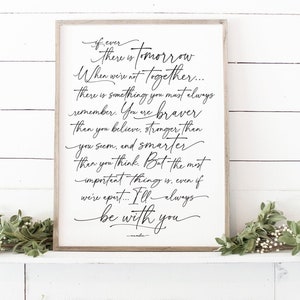 if ever
there is tomorrow
When we're not together...
there is something you must always
remember. You are braver
than you believe, stronger than
you seem, and smarter
than you think. But the most
important thing is, even if
we're apart... I'll always
be with you